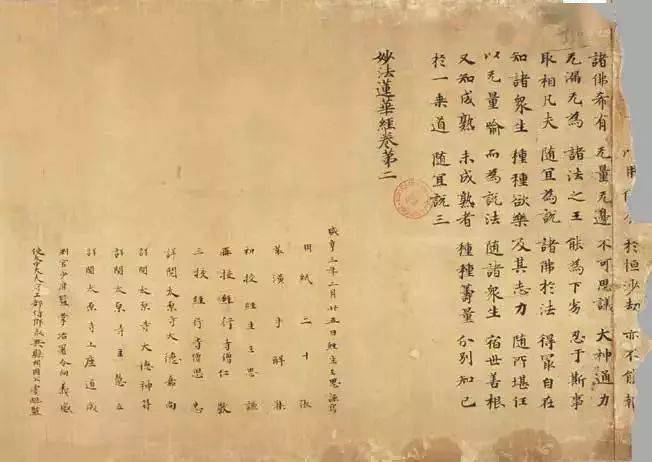 於恒沙劫 亦不能報
諸佛希有 无量无邊 不可思議 大神通力
无漏无為 諸法之王 能為下劣 忍于斯事
取相凡夫 隨宜為說 諸佛於法 得冣自在
知諸衆生 種種欲樂 及其志力 隨所堪任
以无量喻 而為說法 隨諸衆生 宿世善根
又知成熟 未成熟者 種種籌量 分別知已
於一乘道 隨宜說三
妙法蓮華經卷第二
咸亨三年二月廿五日經生王思謙寫
用紙二十張
装潢手解集
初校經生王思謙
再校經行寺僧仁敬
三校經行寺僧思忠
詳閱太原寺大德嘉尚
詳閱太原寺大德神符
詳閱太原寺主慧立
詳閱太原寺上座道成
判官少府監掌冶署令向義感
使太中大夫守工部侍郎永興縣開國公虞昶監